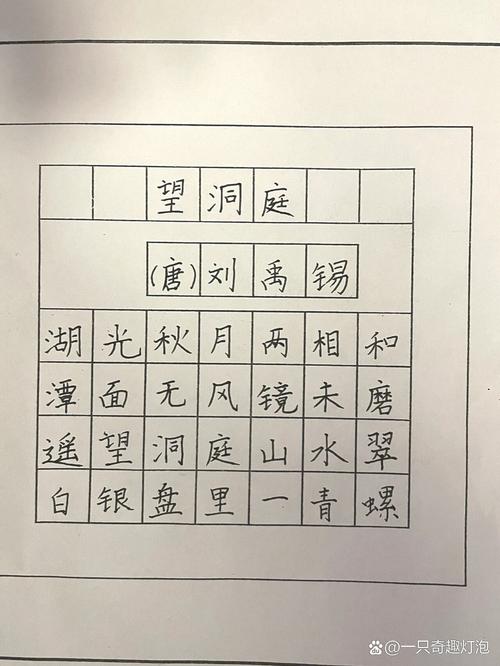 望洞庭
(唐)刘禹锡
湖光秋月两相和
潭面无风镜未磨
遥望洞庭山水翠
白银盘里一青螺
@一只奇趣灯泡